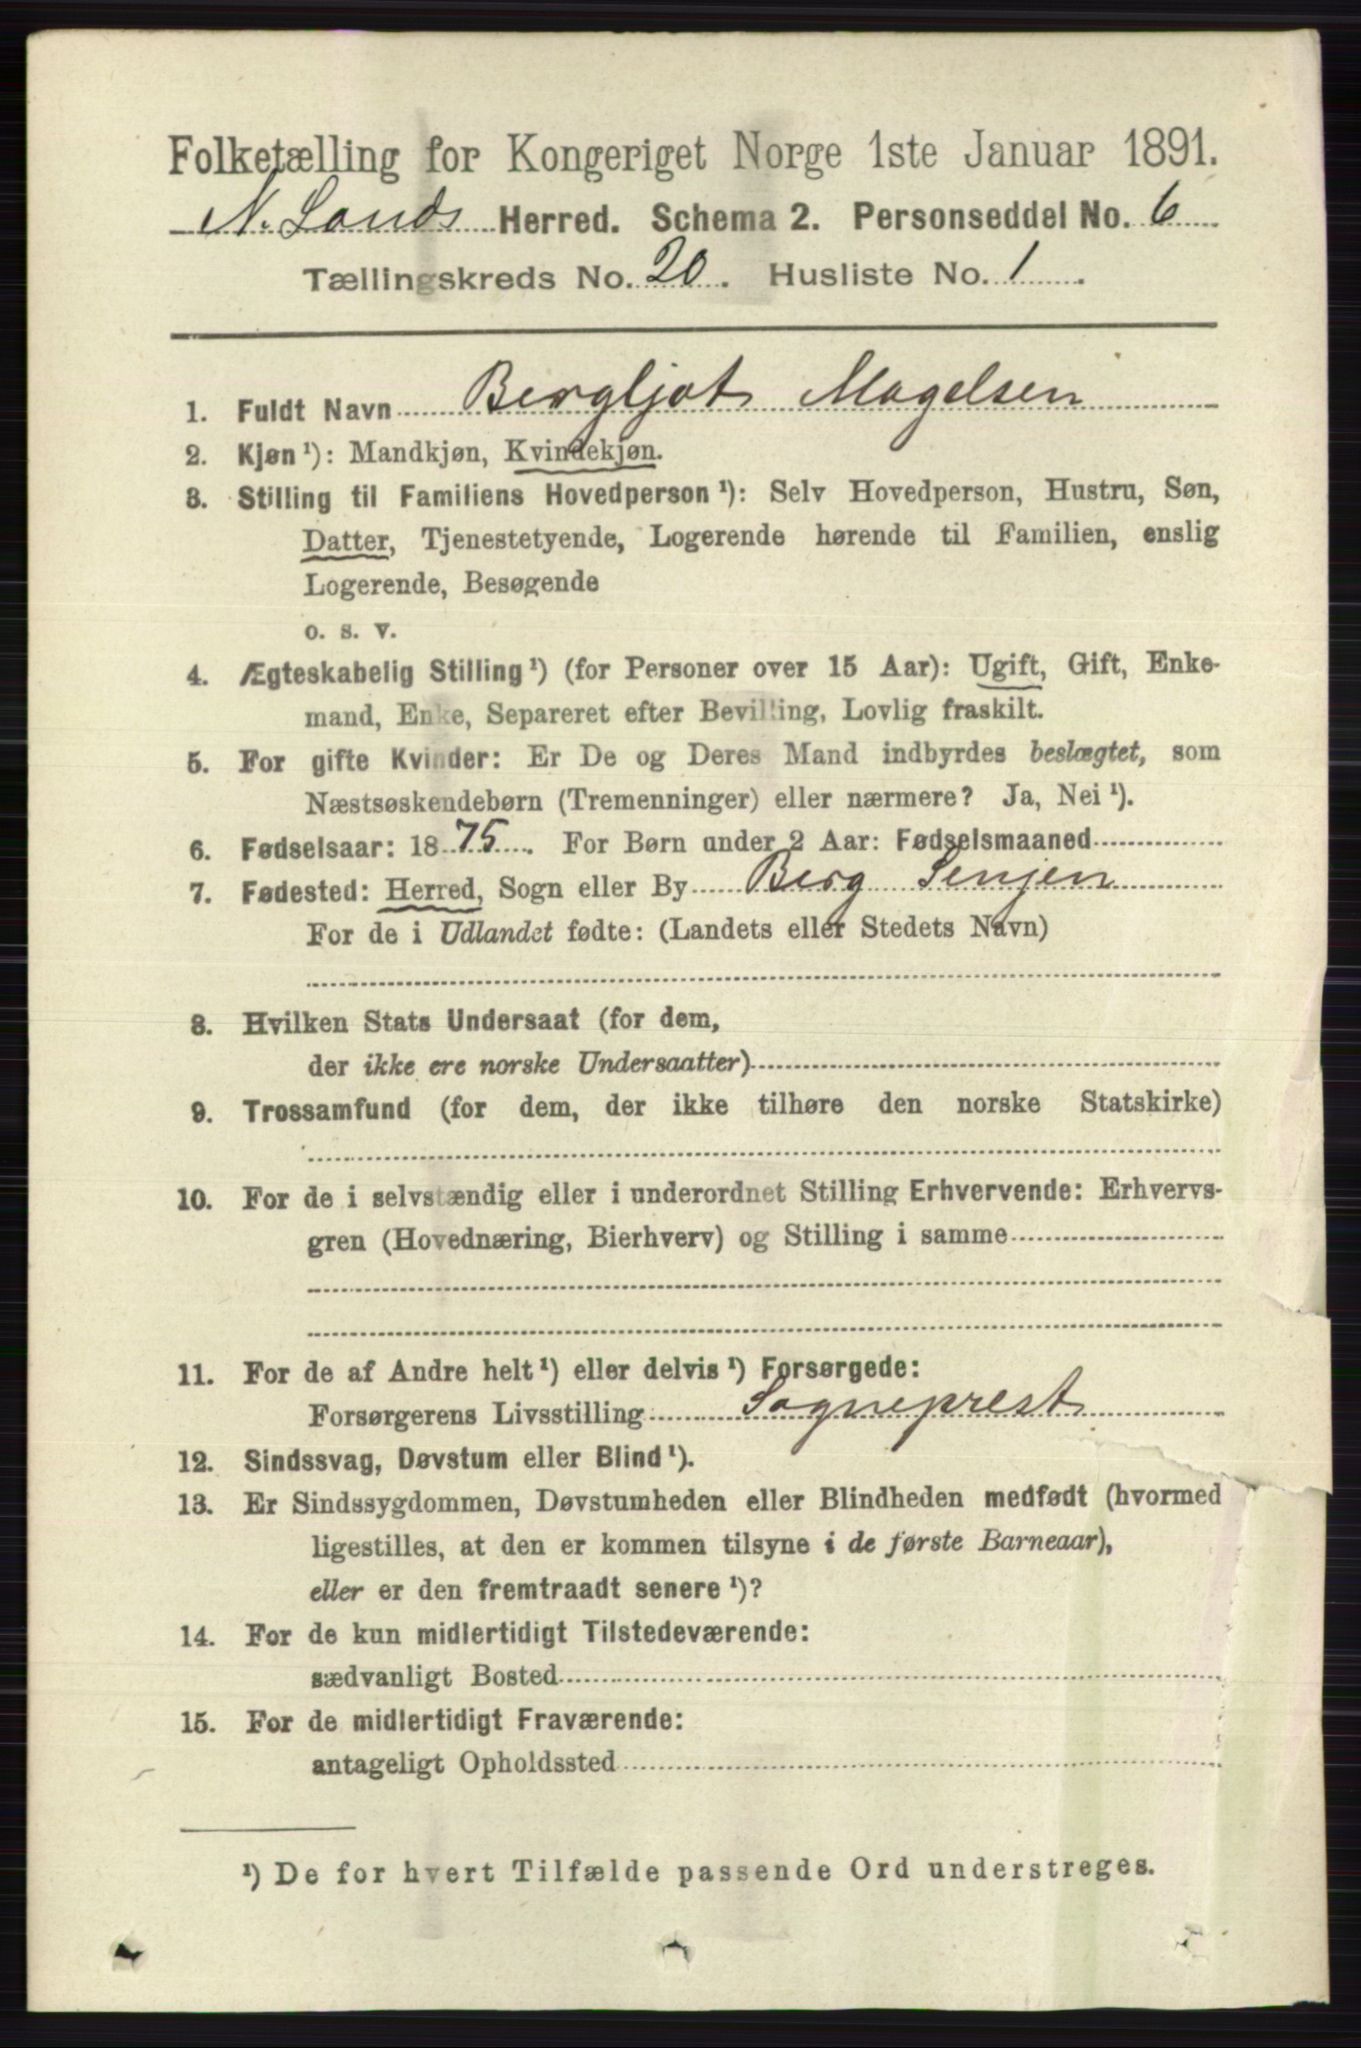 Folketælling for Kongeriget Norge 1ste Januar 1891.
N. Lands Herred. Schema 2. Personseddel No. 6
Tællingskreds No. 20. Husliste No. 1.
1. Fuldt Navn Bergljot Magelsen
2. Kjøn¹): Mandkjøn, Kvindekjøn.
3. Stilling til Familiens Hovedperson¹): Selv Hovedperson, Hustru, Søn,
Datter, Tjenestetyende, Logerende hørende til Familien, enslig
Logerende, Besøgende
o. s. v.
4. Ægteskabelig Stilling¹) (for Personer over 15 Aar): Ugift, Gift, Enke-
mand, Enke, Separeret efter Bevilling, Lovlig fraskilt.
5. For gifte Kvinder: Er De og Deres Mand indbyrdes beslægtet, som
Næstsøskendebørn (Tremenninger) eller nærmere? Ja, Nei¹).
6. Fødselsaar: 1875. For Børn under 2 Aar: Fødselsmaaned
7. Fødested: Herred, Sogn eller By Berg Senjen
For de i Udlandet fødte: (Landets eller Stedets Navn)
8. Hvilken Stats Undersaat (for dem,
der ikke ere norske Undersaatter)
9. Trossamfund (for dem, der ikke tilhøre den norske Statskirke)
10. For de i selvstændig eller i underordnet Stilling Erhvervende: Erhvervs-
gren (Hovednæring, Bierhverv) og Stilling i samme
11. For de af Andre helt¹) eller delvis¹) Forsørgede:
Forsørgerens Livsstilling Sogneprest
12. Sindssvag, Døvstum eller Blind¹).
13. Er Sindssygdommen, Døvstumheden eller Blindheden medfødt (hvormed
ligestilles, at den er kommen tilsyne i de første Barneaar),
eller er den fremtraadt senere¹)?
14. For de kun midlertidigt Tilstedeværende:
sædvanligt Bosted
15. For de midlertidigt Fraværende:
antageligt Opholdssted
¹) De for hvert Tilfælde passende Ord understreges.